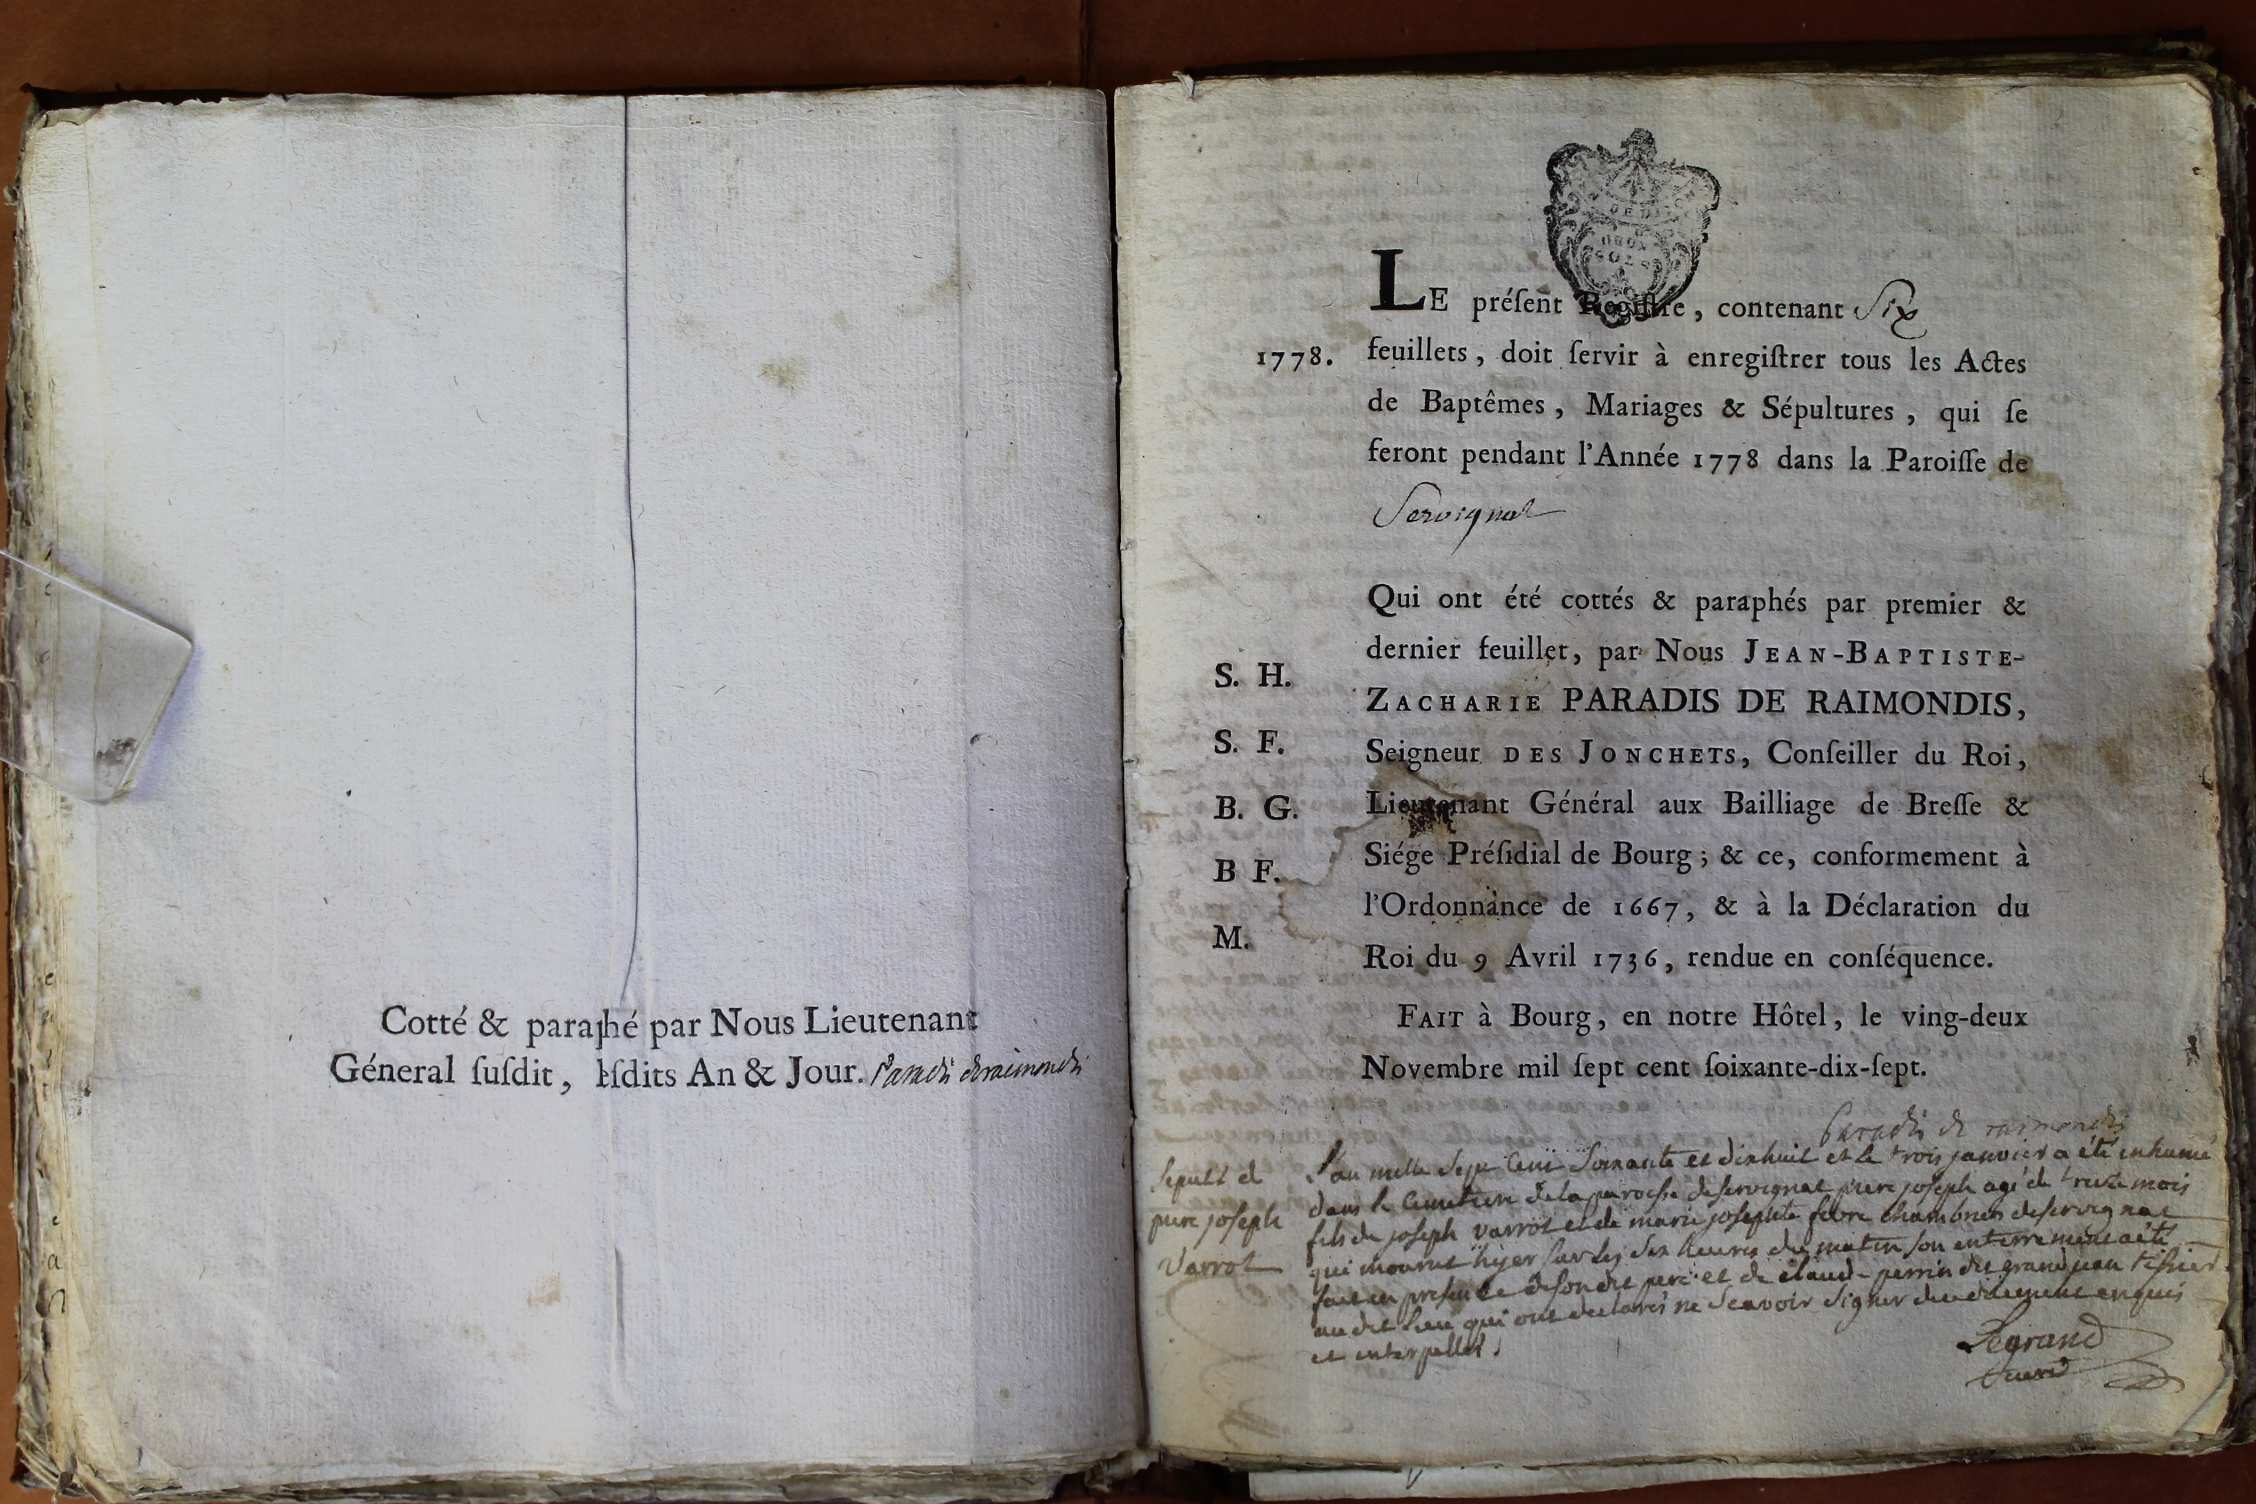 Cotté & paraphé par Nous Lieutenant
Géneral ſuſdit, leſdits An & Jour. Paradis deraimondis
LE préſent Regiſtre, contenant Six
1778.
feuillets, doit ſervir à enregiſtrer tous les Actes
de Baptêmes, Mariages & Sépultures, qui ſe
feront pendant l'Année 1778 dans la Paroiſſe de
Servignat
Qui ont été cottés & paraphés par premier &
dernier feuillet, par Nous JEAN-BAPTISTE-
ZACHARIE PARADIS DE RAIMONDIS,
Seigneur DES JONCHETS, Conſeiller du Roi,
Lieutenant Général aux Bailliage de Breſſe &
Siége Préſidial de Bourg; & ce, conformement à
l'Ordonnance de 1667, & à la Déclaration du
Roi du 9 Avril 1736, rendue en conſéquence.
FAIT à Bourg, en notre Hôtel, le ving-deux
Novembre mil ſept cent ſoixante-dix-ſept.
S. H.
S. F.
B. G.
B F.
M.
Paradis de raimondis
Sepult de
piere joseph
Varrot
l'an mille sept cent soixante et dixhuit et le trois janvier a été inhumé
dans le cimetiere de la paroisse de servignat piere joseph agé de treize mois
fils de joseph varrot et de marie josephte febvre de servignat
qui mourut hyer sur les dix heures du matin son enterrement a été
fait en presence de son dit pere et de claude perrin dit grandjean tissier
au dit lieu qui ont declarés ne scavoir signer duement enquis
et interpellés.
Legrand
curé